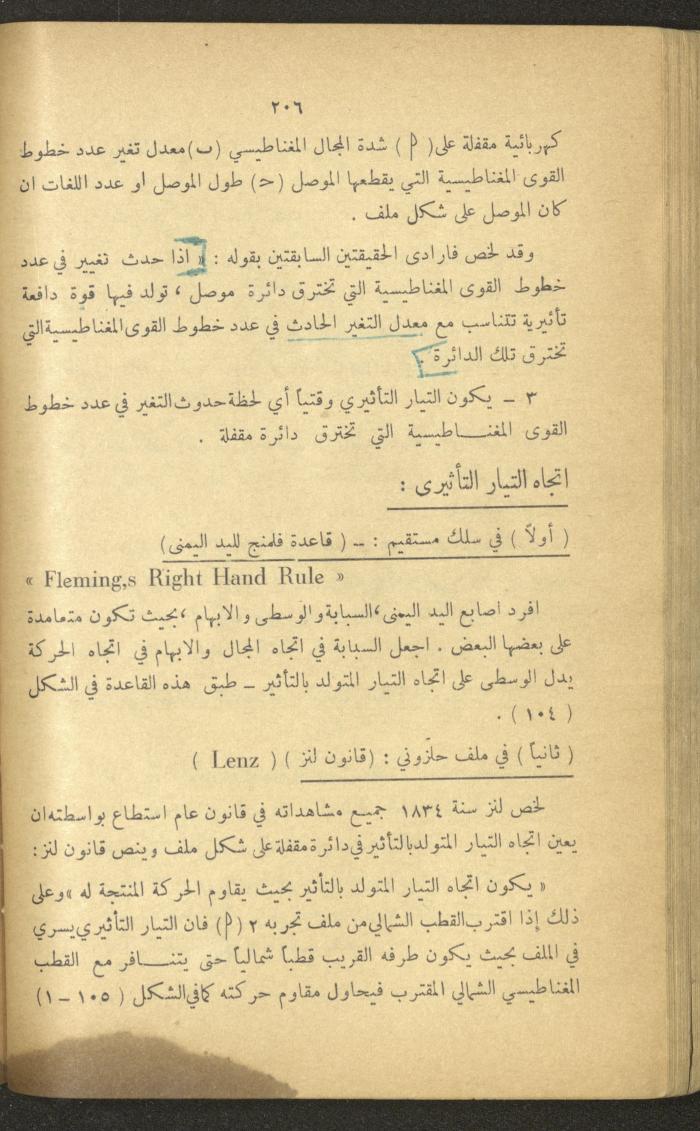 ٢٠٦
كهربائية مقفلة على( م ) شدة المجال المغناطيسي (ب)معدل تغير عدد خطوط
القوى المغناطيسية التي يقطعها الموصل (ح) طول الموصل او عدد اللفات ان
كان الموصل على شكل ملف .
وقد لخص فارادى الحقيقتين السابقتين بقوله : « اذا حدث تغيير في عدد
خطوط القوى المغناطيسية التي تخترق دائرة موصل ، تولد فيها قوة دافعة
تأثيرية تتناسب مع معدل التغير الحادث في عدد خطوط القوى المغناطيسية التي
تخترق تلك الدائرة .
٣ – يكون التيار التأثيري وقتياً أي لحظة حدوث التغير في عدد خطوط
القوى المغنـاطيسية التي تخترق دائرة مقفلة .
اتجاه التيار التأثيرى :
( أولاً ) في سلك مستقيم : – ( قاعدة فلمنج لليد اليمنى)
« Fleming,s Right Hand Rule »
افرد اصابع اليد اليمنى ،السبابة والوسطى والابهام ،بحيث تكون متعامدة
على بعضها البعض . اجعل السبابة في اتجاه المجال والابهام في اتجاه الحركة
يدل الوسطى على اتجاه التيار المتولد بالتأثير – طبق هذه القاعدة في الشكل
( ١٠٤ ) .
( ثانياً ) في ملف حلزوني : (قانون لنز ) ( Lenz )
لخص لنز سنة ١٨٣٤ جميع مشاهداته في قانون عام استطاع بواسطته ان
يعين اتجاه التيار المتولد بالتأثير في دائرة مقفلة على شكل ملف وينص قانون لنز:
« يكون اتجاه التيار المتولد بالتأثير بحيث يقاوم الحركة المنتجة له »وعلى
ذلك إذا اقترب القطب الشمالي من ملف تجربه ٢ (م) فان التيار التأثيري يسري
في الملف بحيث يكون طرفه القريب قطباً شمالياً حتى يتنـافر مع القطب
المغناطيسي الشمالي المقترب فيحاول مقاوم حركته كما في الشكل ( ١٠٥ – ١)